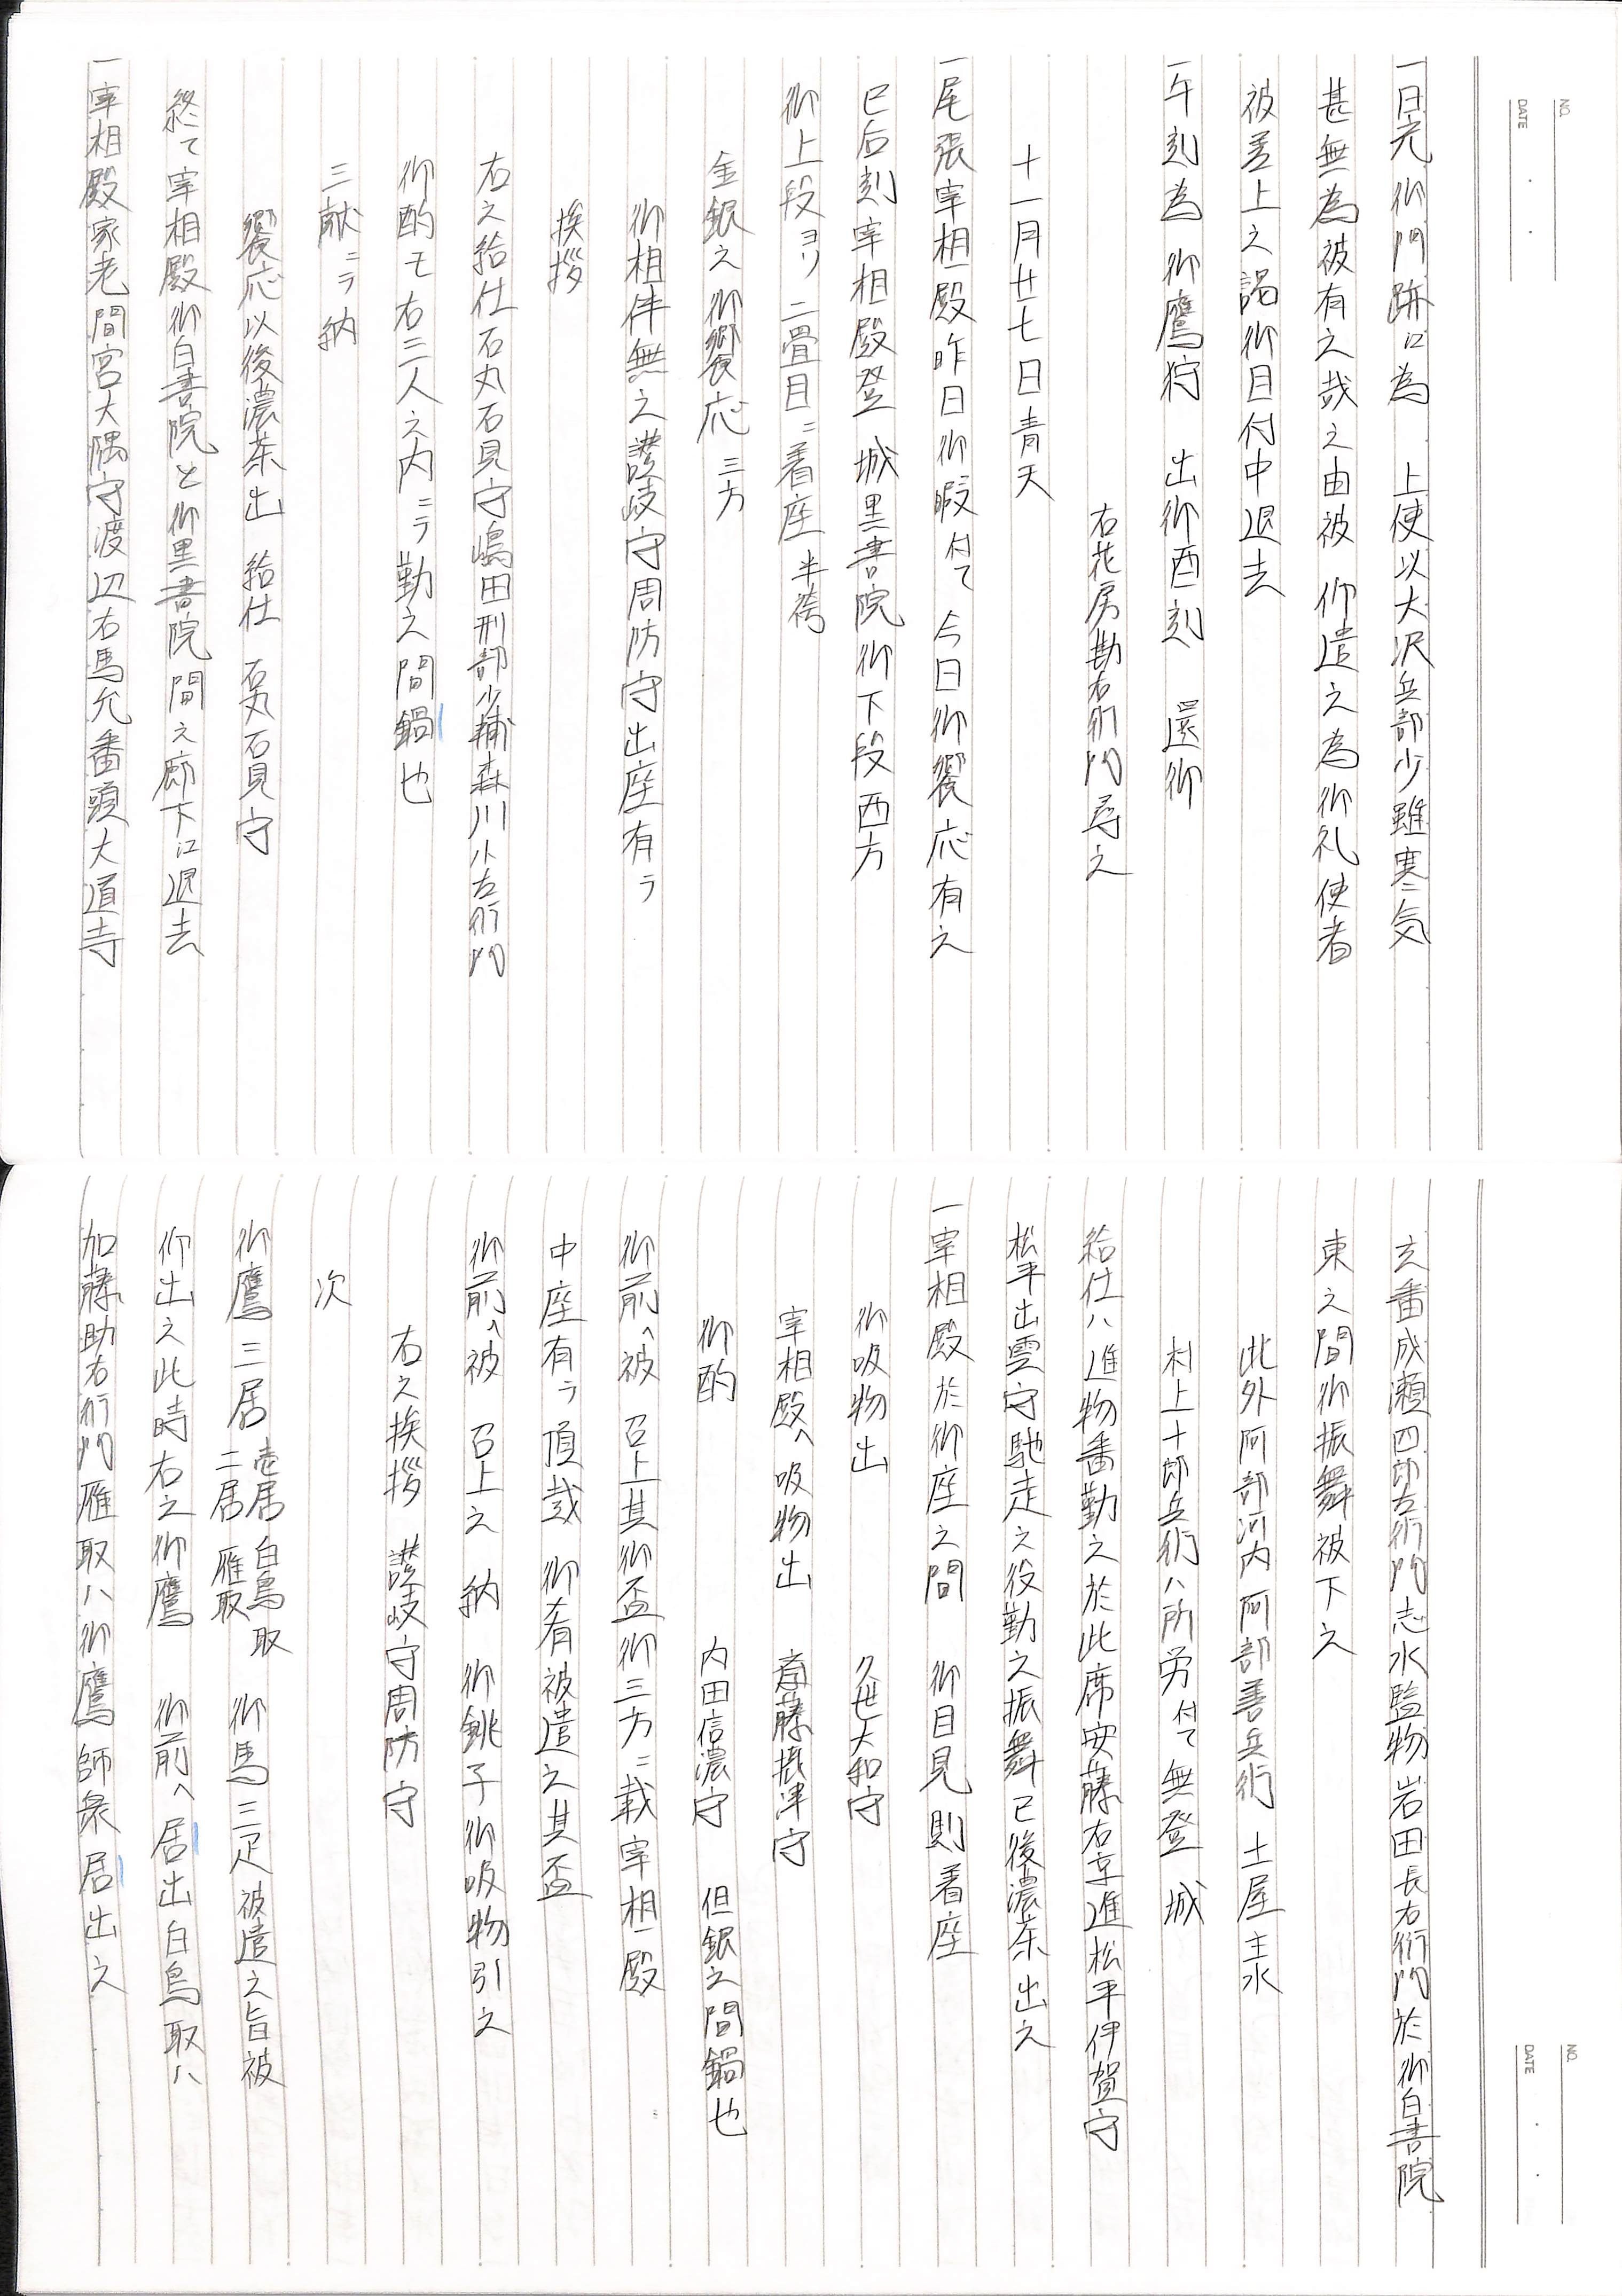 NO.
DATE
一日光御門跡江為　上使以大沢兵部少雖寒気
甚無為被有之哉之由被　仰遣之為御礼使者
被差上之謁御目付中退去
一午刻為　御鷹狩　出御酉刻　還御
右花房勘右衛門尋之
十一月廿七日青天
一尾張宰相殿昨日御暇付て　今日御饗応有之
巳后刻宰相殿登　城黒書院御下段西方
御上段ヨリ二畳目ニ着座　半袴
金銀之御饗応　三方
御相伴無之讃岐守周防守出座有テ
挨拶
右之給仕石丸石見守嶋田刑部少輔森川小左衛門
御酌モ右三人之内ニテ勤之間鍋也
三献ニテ納
饗応以後濃茶出　給仕　石丸石見守
終て宰相殿御白書院と御黒書院間之廊下江退去
一宰相殿家老間宮大隅守渡辺右馬允番頭大道寺
NO.
DATE
玄番成瀬四郎左衛門志水監物岩田長右衛門於御白書院
東之間御振舞被下之
此外阿部河内　阿部善兵衛　土屋主水
村上十郎兵衛ハ所労付て無登　城
給仕ハ進物番勤之於此席安藤右京進松平伊賀守
松平出雲守馳走之役勤之振舞已後濃茶出之
一宰相殿於御座之間　御目見則着座
御吸物出　久世大和守
宰相殿へ吸物出　斎藤摂津守
御酌　内田信濃守　但銀之間鍋也
御前へ被　召上其御盃御三方ニ載宰相殿
中座有テ頂戴　御肴被遣之其盃
御前へ被　召上之　納　御銚子御吸物引之
右之挨拶　讃岐守周防守
次
御鷹三居　壱居白鳥取　二居雁取　御馬三疋被遣之旨被
仰出之此時右之御鷹　御前へ居出白鳥取ハ
加藤助右衛門雁取ハ御鷹師衆居出之